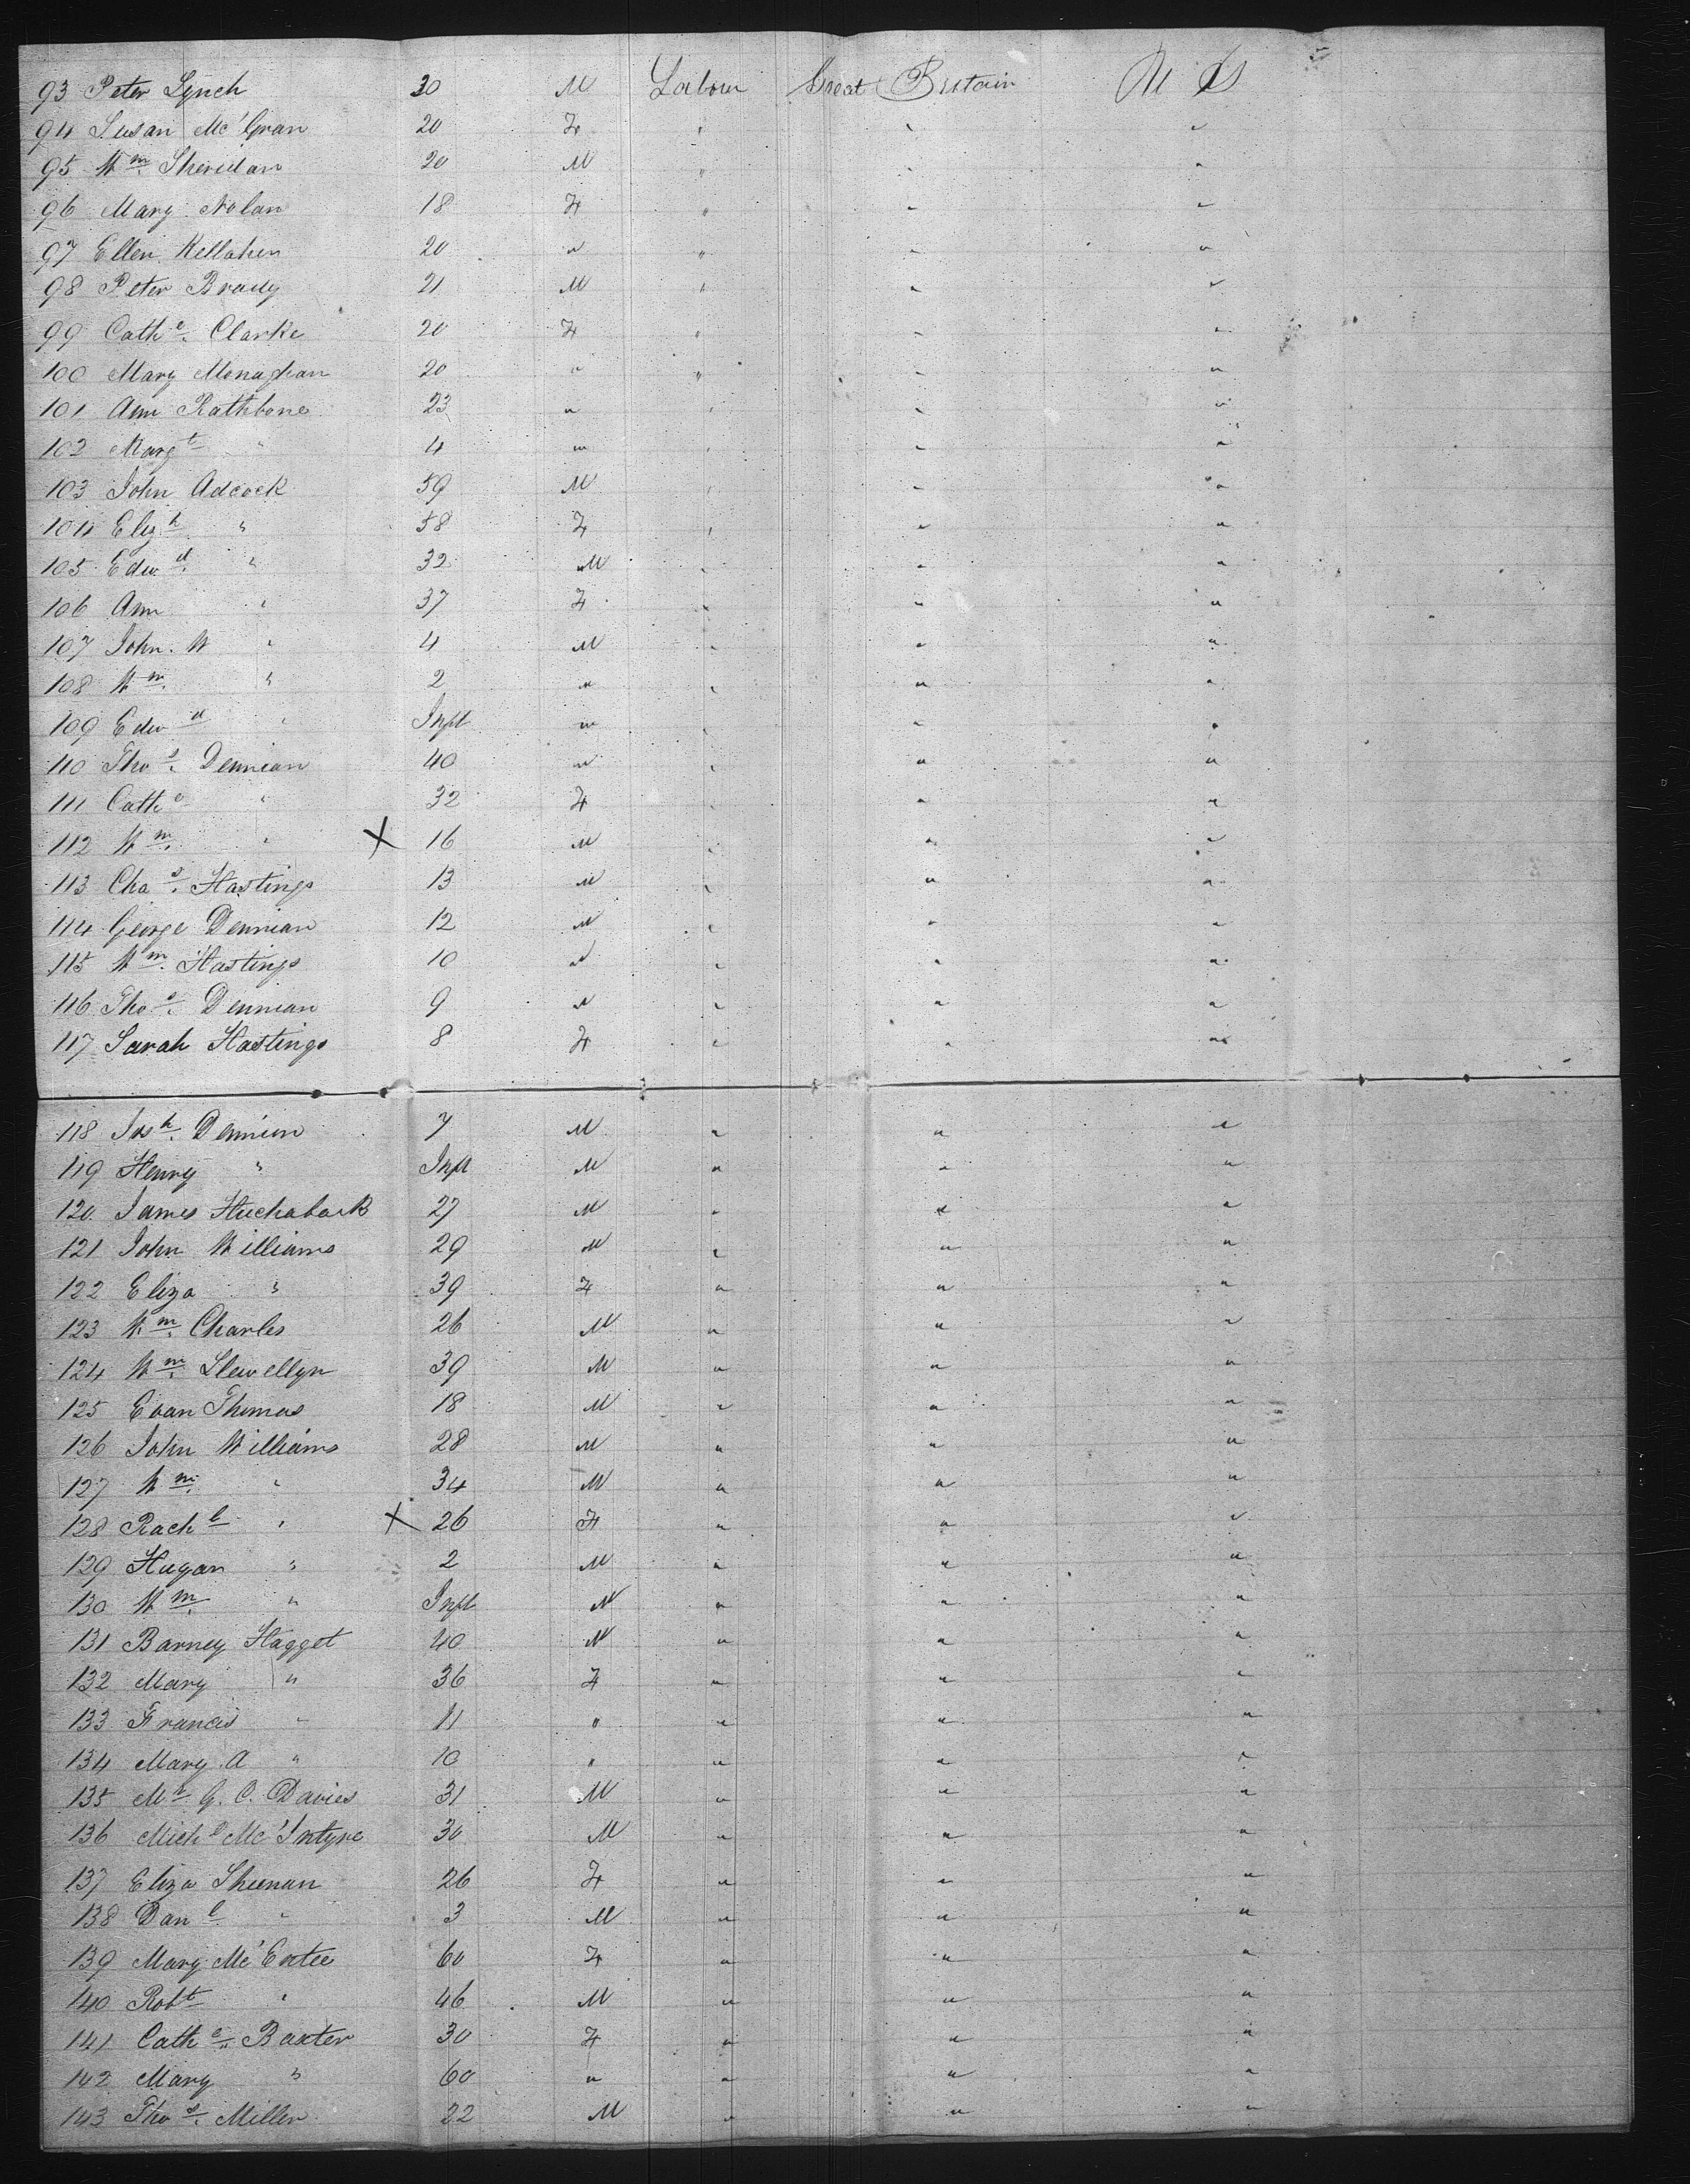 93 Peter Lynch 30 M Labour Great Britain U S
94 Susan Mc'Gran 20 F " " "
95 Wm. Sheridan 20 M " " "
96 Mary Nolan 18 F " " "
97 Ellen Kellahen 20 " " " "
98 Peter Brady 21 M " " "
99 Cathe. Clarke 20 F " " "
100 Mary Monaghan 20 " " " "
101 Ann Rathbone 23 " " " "
102 Margt " 4 " " " "
103 John Adcock 59 M " " "
104 Elizh " 58 F " " "
105 Edwd. " 32 M " " "
106 Ann " 37 F " " "
107 John. W " 4 M " " "
108 Wm. " 2 " " " "
109 Edwd " Inft " " " "
110 Thos. Dennian 40 " " " "
111 Cathe " 32 F " " "
112 Wm. " X 16 M " " "
113 Chas. Hastings 13 M " " "
114 George Dennian 12 M " " "
115 Wm. Hastings 10 " " " "
116 Thos. Dennian 9 " " " "
117 Sarah Hastings 8 F " " "
118 Josh. Dennion 7 M " " "
119 Henry " Inft M " " "
120. James Huchaback 27 M " " "
121 John Williams 29 M " " "
122 Eliza " 39 F " " "
123 Wm. Charles 26 M " " "
124 Wm. Llewellyn 39 M " " "
125 Evan Thomas 18 M " " "
126 John Williams 28 M " " "
127 Wm. " 34 M " " "
128 Rachl " X 26 F " " "
129 Hugan " 2 M " " "
130 Wm. " Inft M " " "
131 Barney Hagget 40 M " " "
132 Mary " 36 F " " "
133 Francis " 11 " " " "
134 Mary A " 10 " " " "
135 Mr G. C. Davies 31 M " " "
136 Michl Mc'Intyre 30 M " " "
137 Eliza Sheenan 26 F " " "
138 Danl " 3 M " " "
139 Mary Mc'Entee 60 F " " "
140 Robt " 46 M " " "
141 Cathe. Baxter 30 F " " "
142 Mary " 60 " " " "
143 Thos. Miller 22 M " " "